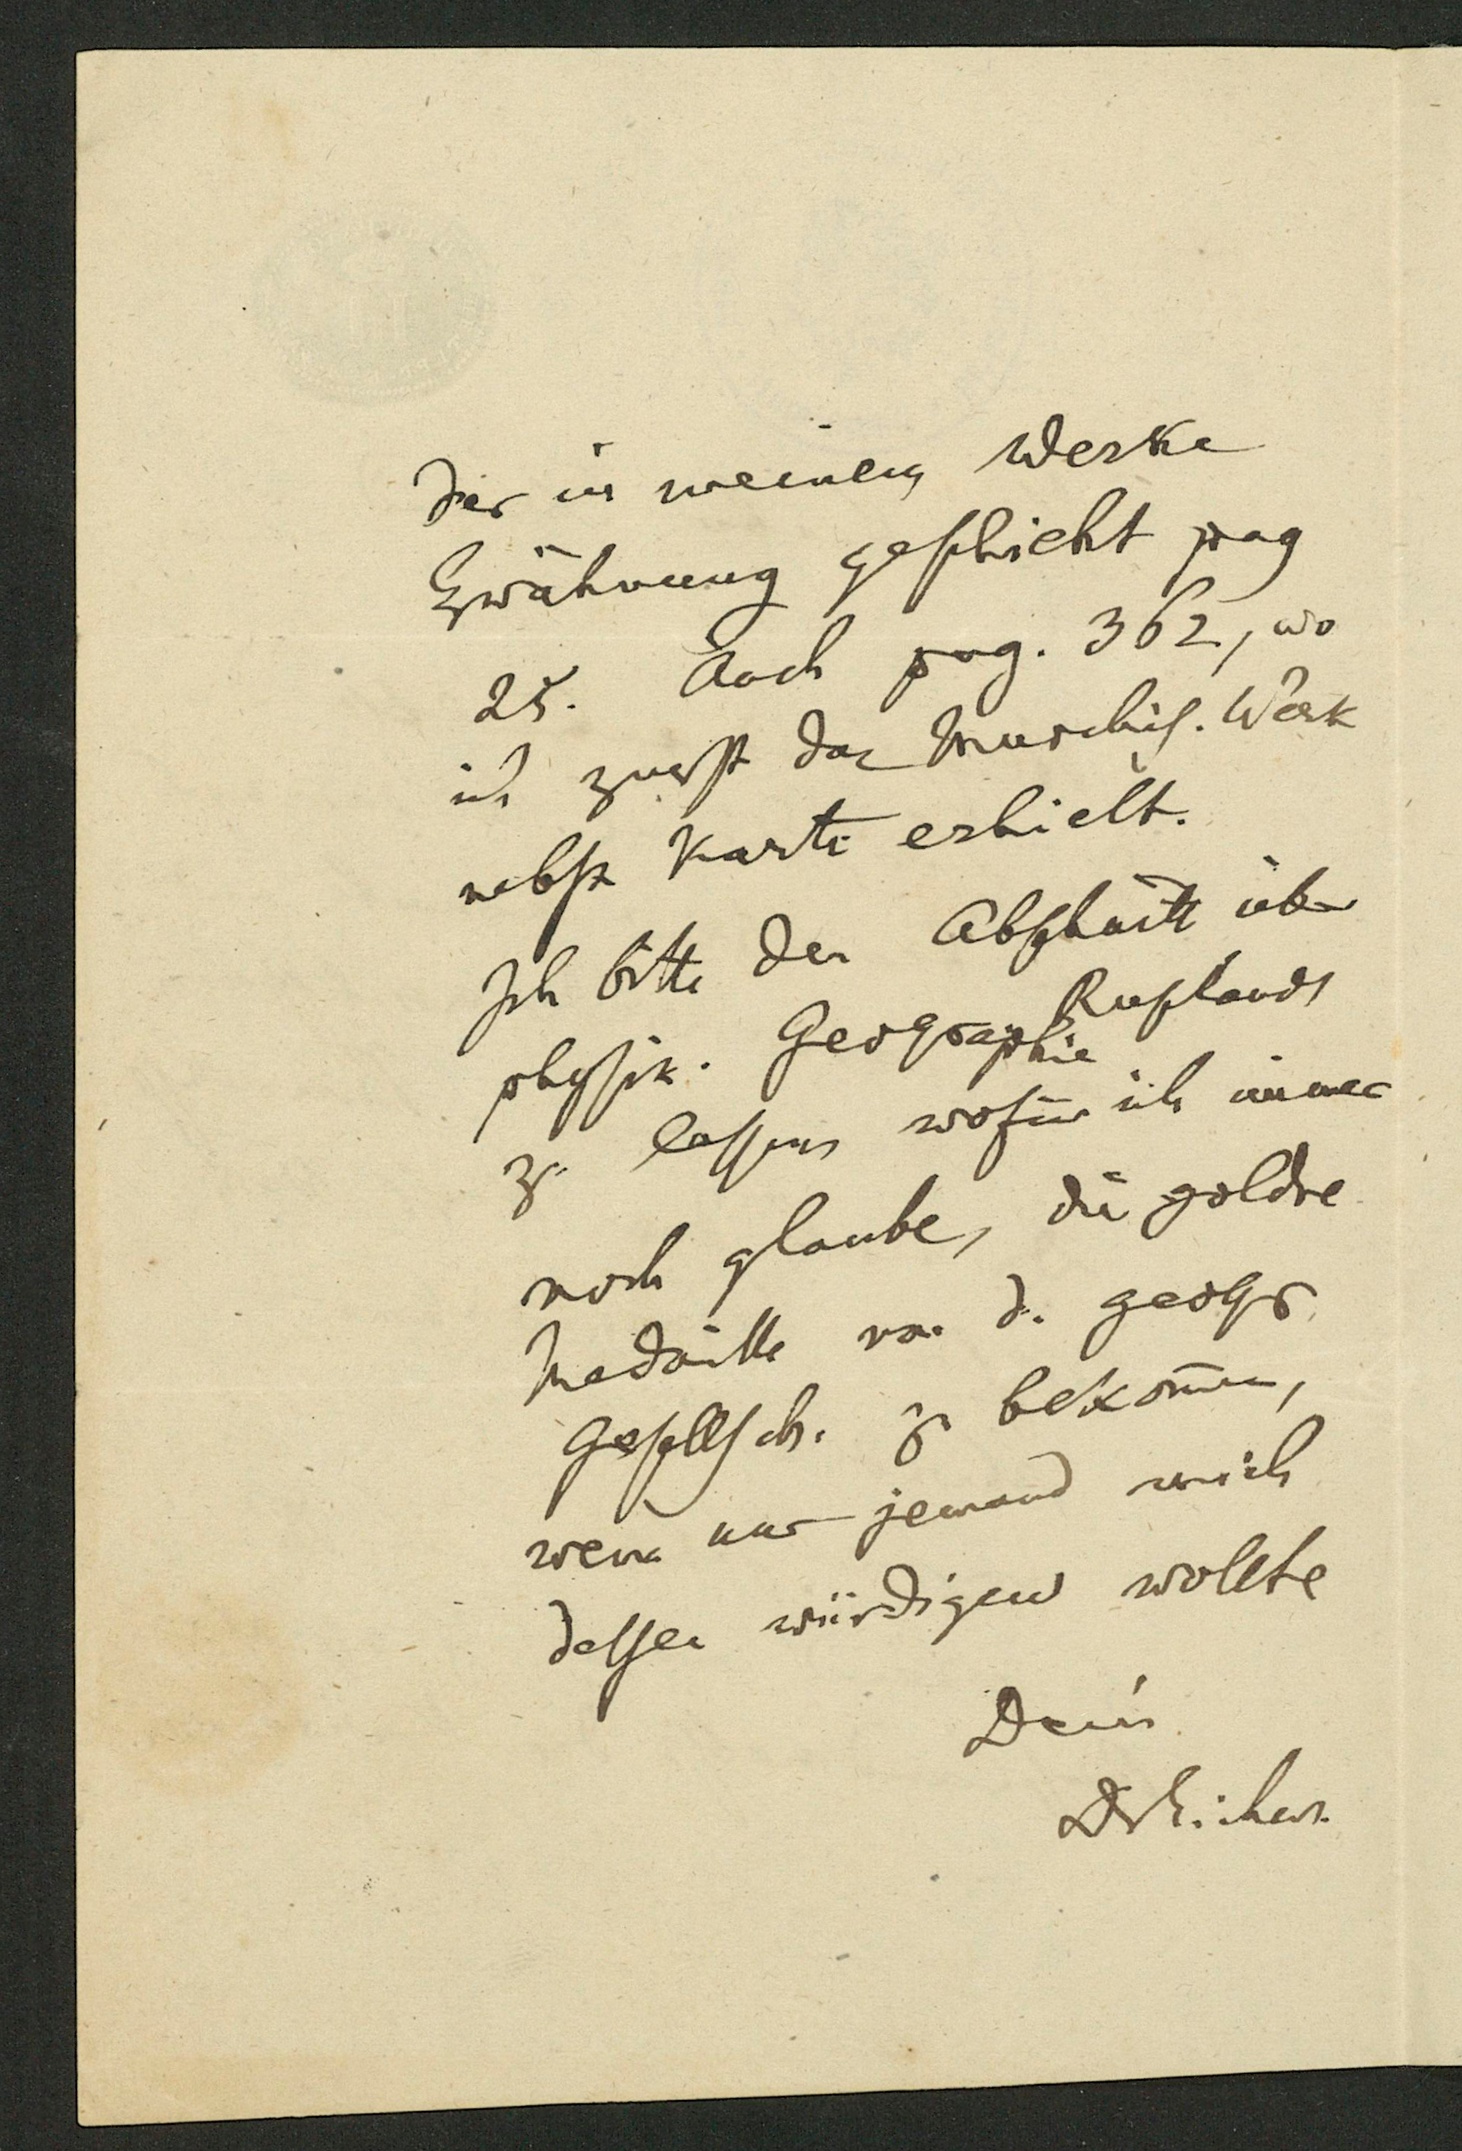 der in meinem Werke
Erwähnung geschieht pag
25. Auch pag. 362, wo
ich zuerst das Murchis. Werk
nebst Karte erhielt.
Ich bitte den Abschnitt über
physik. Geographie Rußlands
zu lassen wofür ich immer
noch glaube, die goldne
Medaille von d. geogr
Gesellsch. zu bekom̅en,
wenn nur jemand mich
dessen würdigen wollte
Dein
DrEichw.